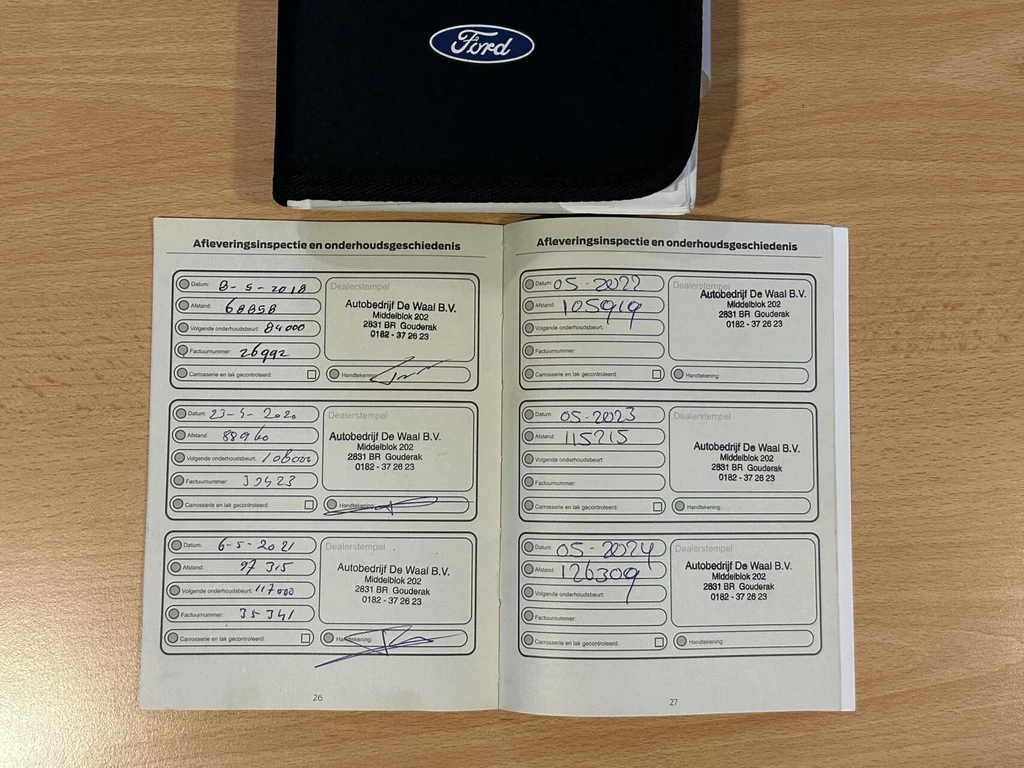 Ford
Afleveringsinspectie en onderhoudsgeschiedenis
Datum: 8-5-2018
Afstand: 68898
Volgende onderhoudsbeurt: 84000
Factuurnummer: 26992
Carrosserie en lak gecontroleerd:
Dealerstempel
Autobedrijf De Waal B.V.
Middelblok 202
2831 BR Gouderak
0182 - 37 26 23
Handtekening:
Datum: 23-5-2020
Afstand: 88960
Volgende onderhoudsbeurt: 108000
Factuurnummer: 32423
Carrosserie en lak gecontroleerd:
Dealerstempel
Autobedrijf De Waal B.V.
Middelblok 202
2831 BR Gouderak
0182 - 37 26 23
Handtekening:
Datum: 6-5-2021
Afstand: 97315
Volgende onderhoudsbeurt: 117000
Factuurnummer: 35341
Carrosserie en lak gecontroleerd:
Dealerstempel
Autobedrijf De Waal B.V.
Middelblok 202
2831 BR Gouderak
0182 - 37 26 23
Handtekening:
26
Afleveringsinspectie en onderhoudsgeschiedenis
Datum: 05-2022
Afstand: 105919
Volgende onderhoudsbeurt:
Factuurnummer:
Carrosserie en lak gecontroleerd:
Dealerstempel
Autobedrijf De Waal B.V.
Middelblok 202
2831 BR Gouderak
0182 - 37 26 23
Handtekening:
Datum: 05-2023
Afstand: 115215
Volgende onderhoudsbeurt:
Factuurnummer:
Carrosserie en lak gecontroleerd:
Dealerstempel
Autobedrijf De Waal B.V.
Middelblok 202
2831 BR Gouderak
0182 - 37 26 23
Handtekening:
Datum: 05-2024
Afstand: 126309
Volgende onderhoudsbeurt:
Factuurnummer:
Carrosserie en lak gecontroleerd:
Dealerstempel
Autobedrijf De Waal B.V.
Middelblok 202
2831 BR Gouderak
0182 - 37 26 23
Handtekening:
27